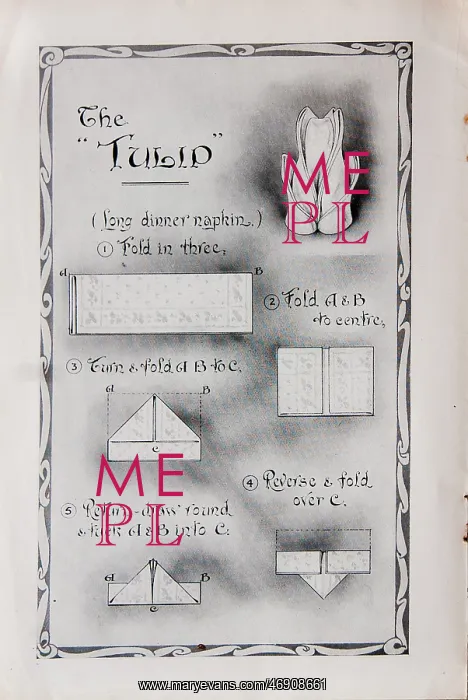 The
"TULIP"
(Long dinner napkin.)
① Fold in three.
A B
② Fold A & B
to centre.
③ Turn & fold A B to C.
A B
C
④ Reverse & fold
over C.
⑤ round
& tuck A & B into C.
A B
C
ME
PL
ME
PL
www.maryevans.com/46908661